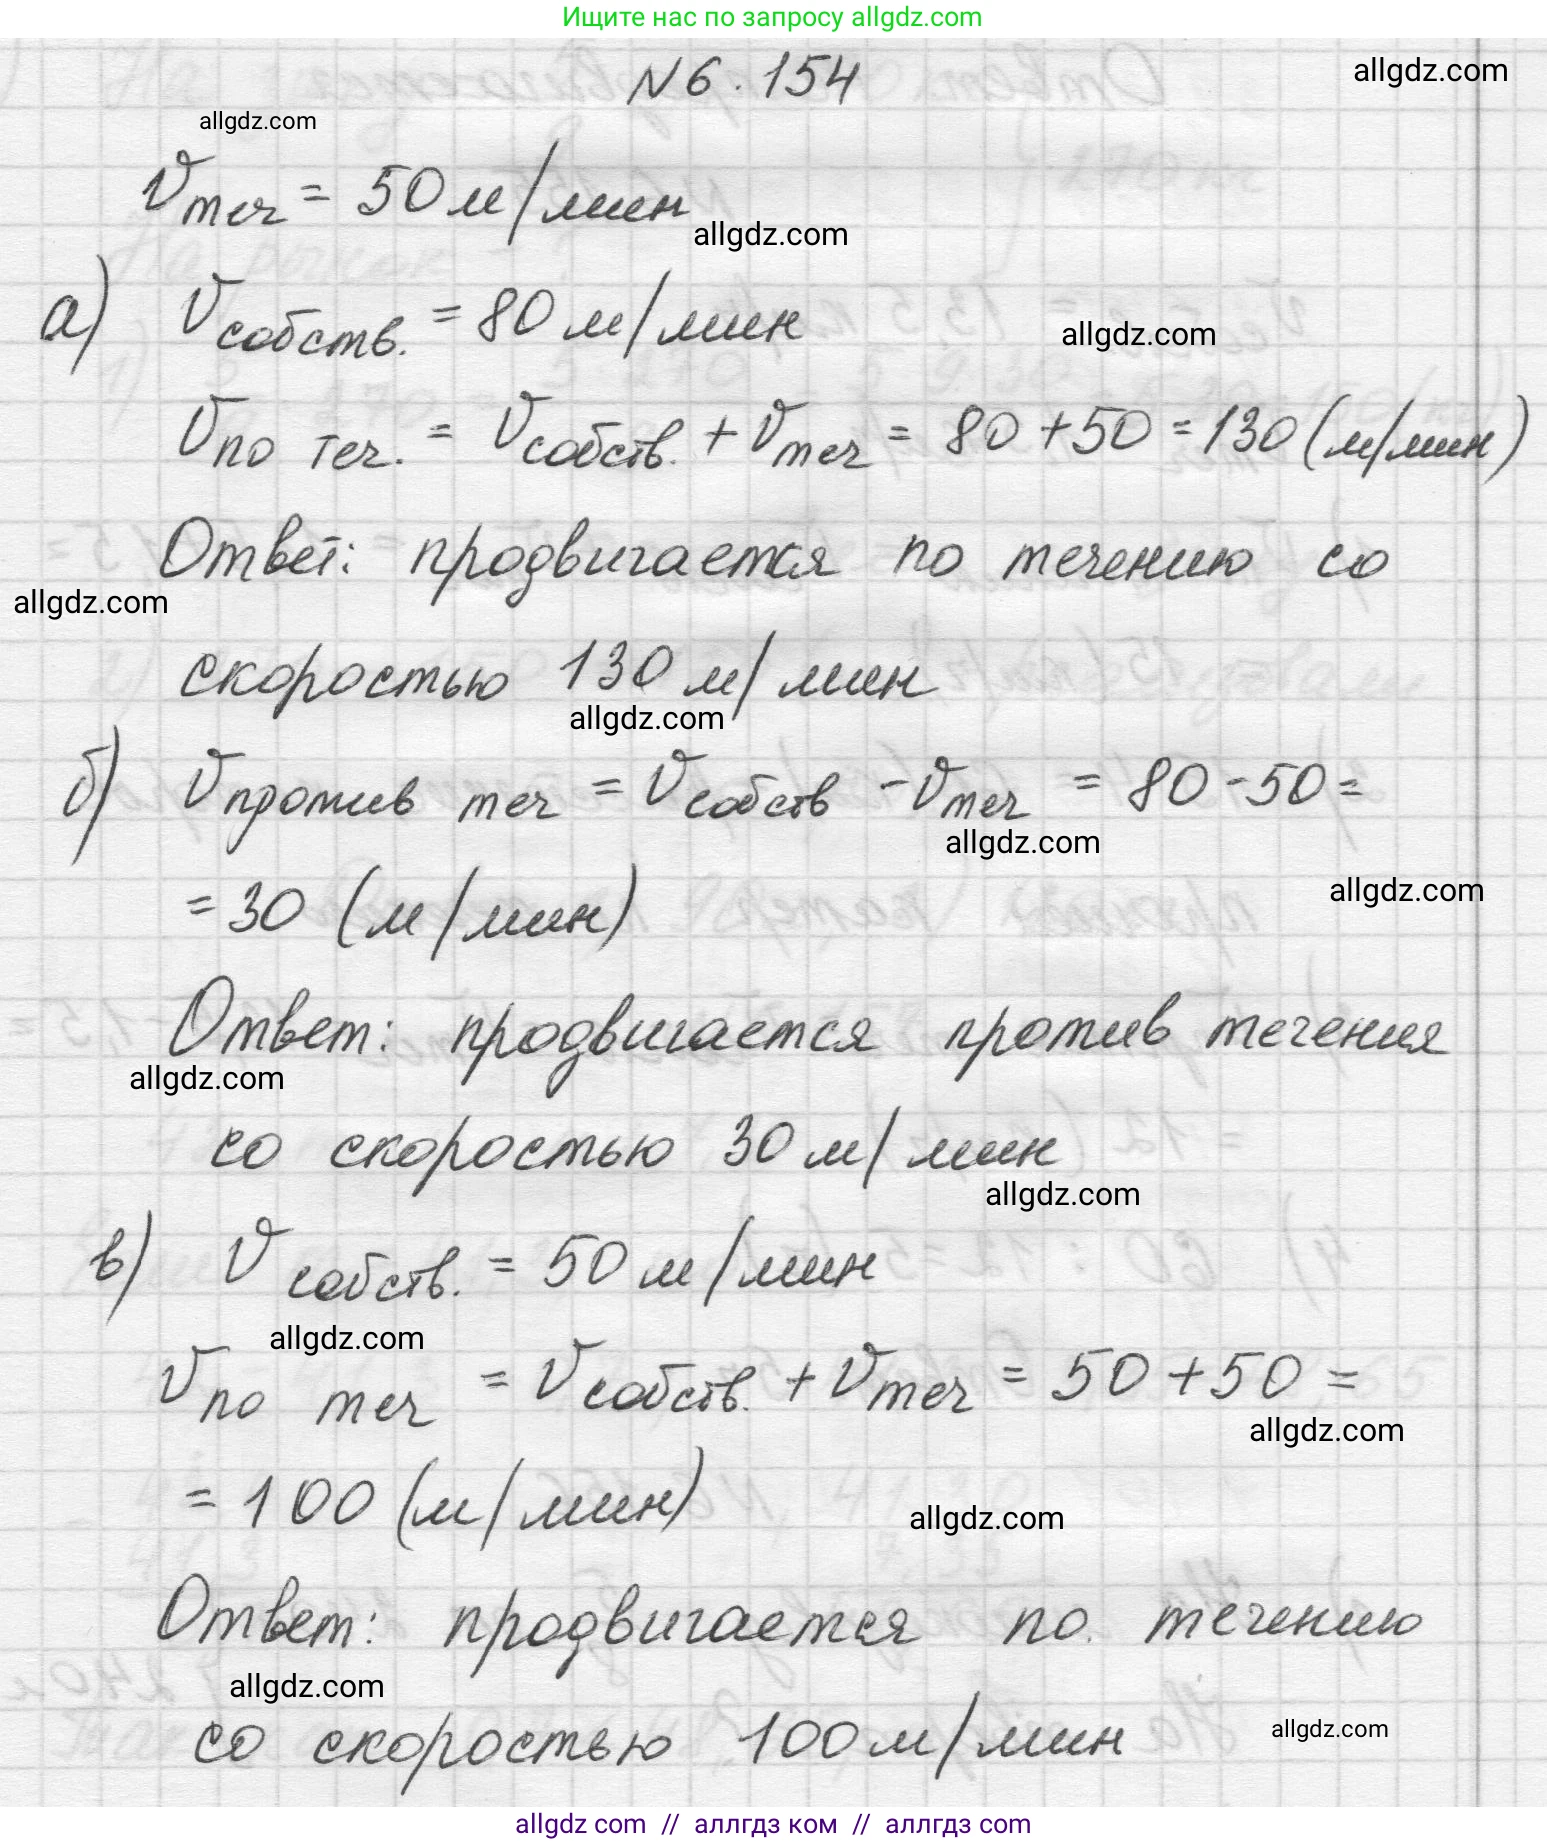 Ищите нас по запросу allgdz.com
N 6.154
allgdz.com
allgdz.com
Vтеч = 50 м/мин
allgdz.com
а) Vсобств. = 80 м/мин
allgdz.com
Vпо теч. = Vсобств. + Vтеч = 80 + 50 = 130 (м/мин)
Ответ: продвигается по течению со
allgdz.com
скоростью 130 м/мин
allgdz.com
б) Vпротив теч = Vсобств - Vтеч = 80 - 50 =
allgdz.com
allgdz.com
= 30 (м/мин)
Ответ: продвигается против течения
allgdz.com
со скоростью 30 м/мин
allgdz.com
в) Vсобств. = 50 м/мин
allgdz.com
Vпо теч = Vсобств. + Vтеч = 50 + 50 =
allgdz.com
= 100 (м/мин)
allgdz.com
Ответ: продвигается по течению
allgdz.com
со скоростью 100 м/мин
allgdz.com
allgdz.com // аллгдз ком // аллгдз com